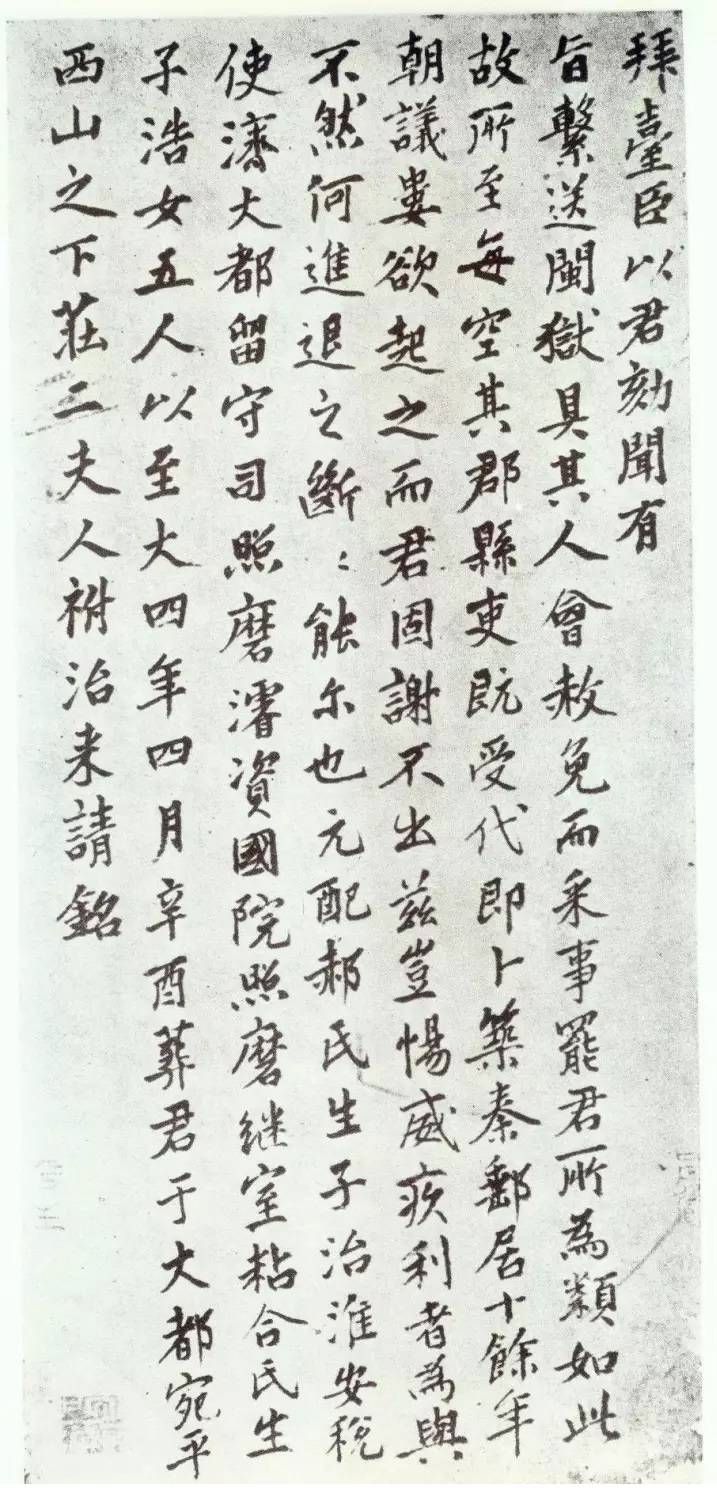 拜臺臣以君劾聞有
旨繫送閩獄具其人會赦免而采事罷君所為類如此
故所至每空其郡縣吏既受代即卜築秦郵居十餘年
朝議婁欲起之而君固謝不出茲豈惕威疚利者為與
不然何進退之斷〻能尔也元配郝氏生子治淮安稅
使濟大都留守司照磨濬資國院照磨继室粘合氏生
子浩女五人以至大四年四月辛酉葬君于大都宛平
西山之下莊二夫人祔治来請銘